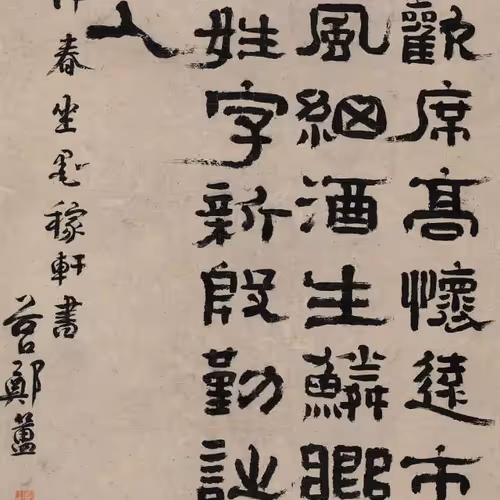 歡席高懷遠市
風細酒生鱗
姓字新殷勤
人
春坐墨稼軒書
谷口鄭簠